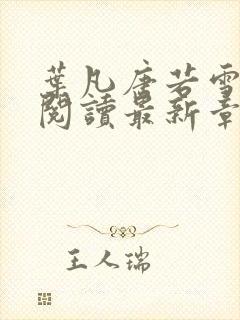 葉凡唐若雪
閱讀最新章
王人瑞